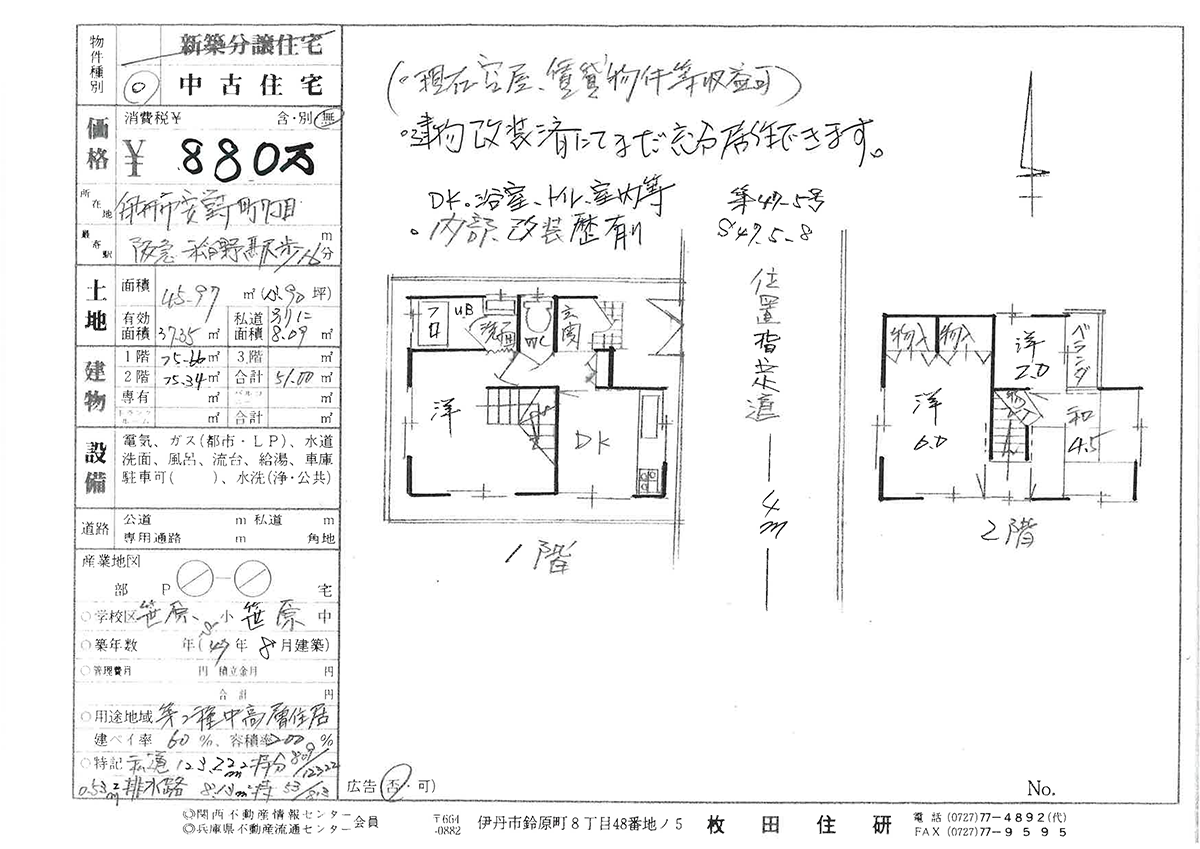 物件種別
新築分譲住宅
中古住宅
価格
消費税¥ 含・別・無
¥ 880万
所在地
伊丹市安堂寺町7丁目
最寄駅
阪急 稲野駅歩16分
m
土地
面積 45.97 ㎡(13.90坪)
有効面積 37.85 ㎡ 私道面積 別に 8.09 ㎡
建物
1階 25.66㎡ 3階 ㎡
2階 25.34㎡ 合計 51.00㎡
専有 ㎡ ㎡
㎡ 合計 ㎡
設備
電気、ガス(都市・LP)、水道
洗面、風呂、流台、給湯、車庫
駐車可( )、水洗(浄・公共)
道路
公道 m 私道 m
専用通路 m 角地
産業地図
部 P ー 宅
○学校区 笹原 小 笹原 中
○築年数 年(47年8月建築)
○管理費月 円 積立金月 円
合計 円
○用途地域 第2種中高層住居
建ペイ率 60%、容積率200%
○特記 私道 123.22㎡ 持分 809/12322
0.53㎡ 排水路 8.13㎡ 持 53/813
(・現在空屋、賃貸物件等収益可)
・建物改装済にてまだ充分居住できます。
DK、浴室、トイレ、室内等
・内部改装歴有り
第47-5号
S47.5.8
位置指定道
4m
フロ
UB
洗面
WC
玄関
洋
DK
1階
物入
物入
洋
2.0
ベランダ
洋
6.0
物
和
4.5
2階
広告(否・可)
No.
◎関西不動産情報センター会員
◎兵庫県不動産流通センター
〒664-0882
伊丹市鈴原町8丁目48番地ノ5
枚田住研
電話(0727)77-4892(代)
FAX(0727)77-9595